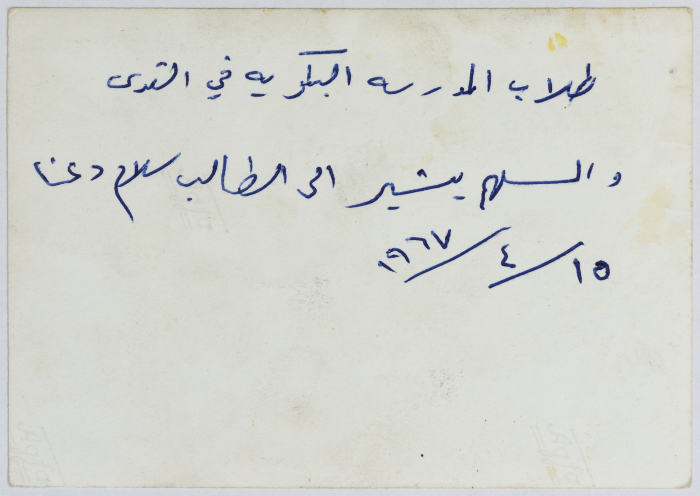 طلاب المدرسه البكريه في القدس
والسهم يشير الى الطالب سلام دعنا
١٥/٤/١٩٦٧